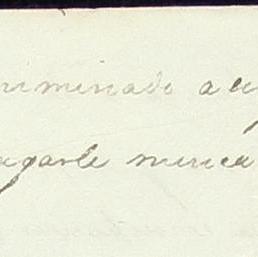 riminado a
agarle nunca